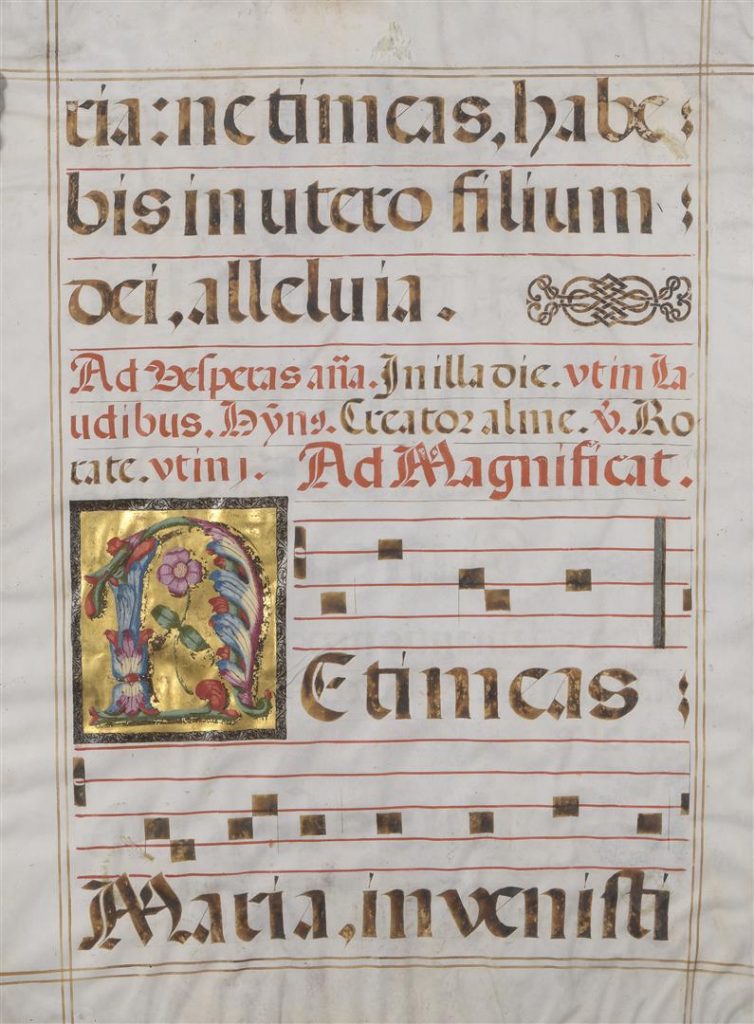 ria: ne timeas, habe:
bis in utero filium:
dei, alleluia.
Ad Vesperas aña. In illa die. vt in La
udibus. Hỹnꝯ. Creator alme. v̇. Ro
rate. vt in j. Ad Magnificat.
NE timeas:
Maria, invenisti